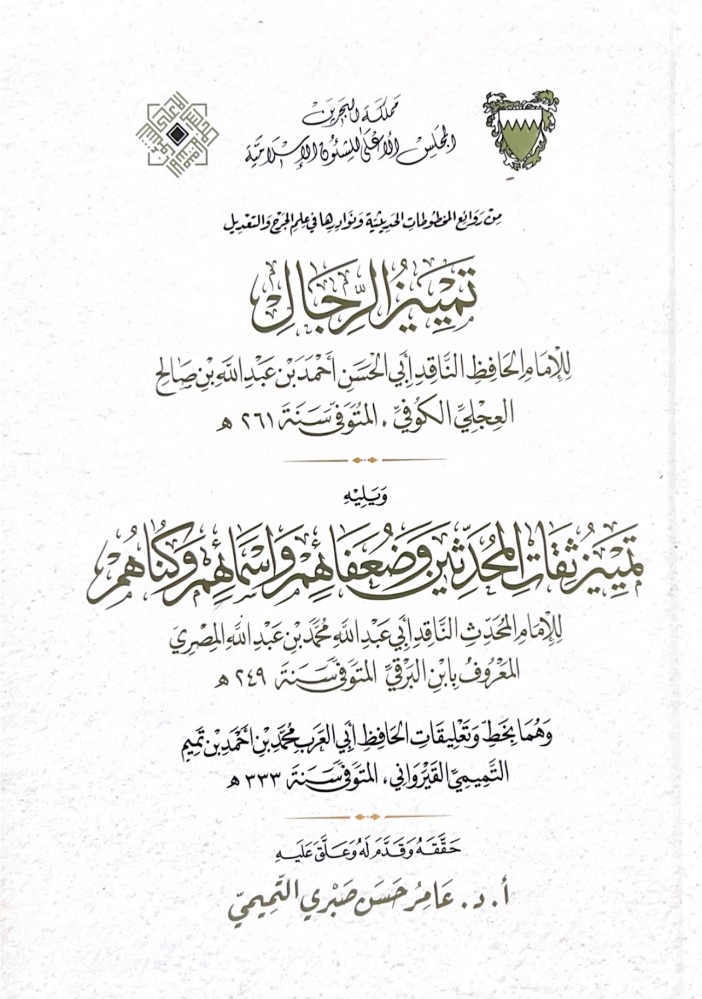 مملكة البحرين
المجلس الأعلى للشئون الإسلامية
من روائع المخطوطات الحديثية ونوادرها في علم الجرح والتعديل
تمييز الرجال
للإمام الحافظ الناقد أبي الحسن أحمد بن عبد الله بن صالح
العجلي الكوفي، المتوفى سنة ٢٦١ هـ
ويليه
تمييز ثقات المحدثين وضعفائهم وأسمائهم وكناهم
للإمام المحدث الناقد أبي عبد الله محمد بن عبد الله المصري
المعروف بابن البرقي المتوفى سنة ٢٤٩ هـ
وهما بخط وتعليقات الحافظ أبي العرب محمد بن أحمد بن تميم
التميمي القيرواني، المتوفى سنة ٣٣٣ هـ
حققه وقدم له وعلق عليه
أ. د. عامر حسن صبري التميمي